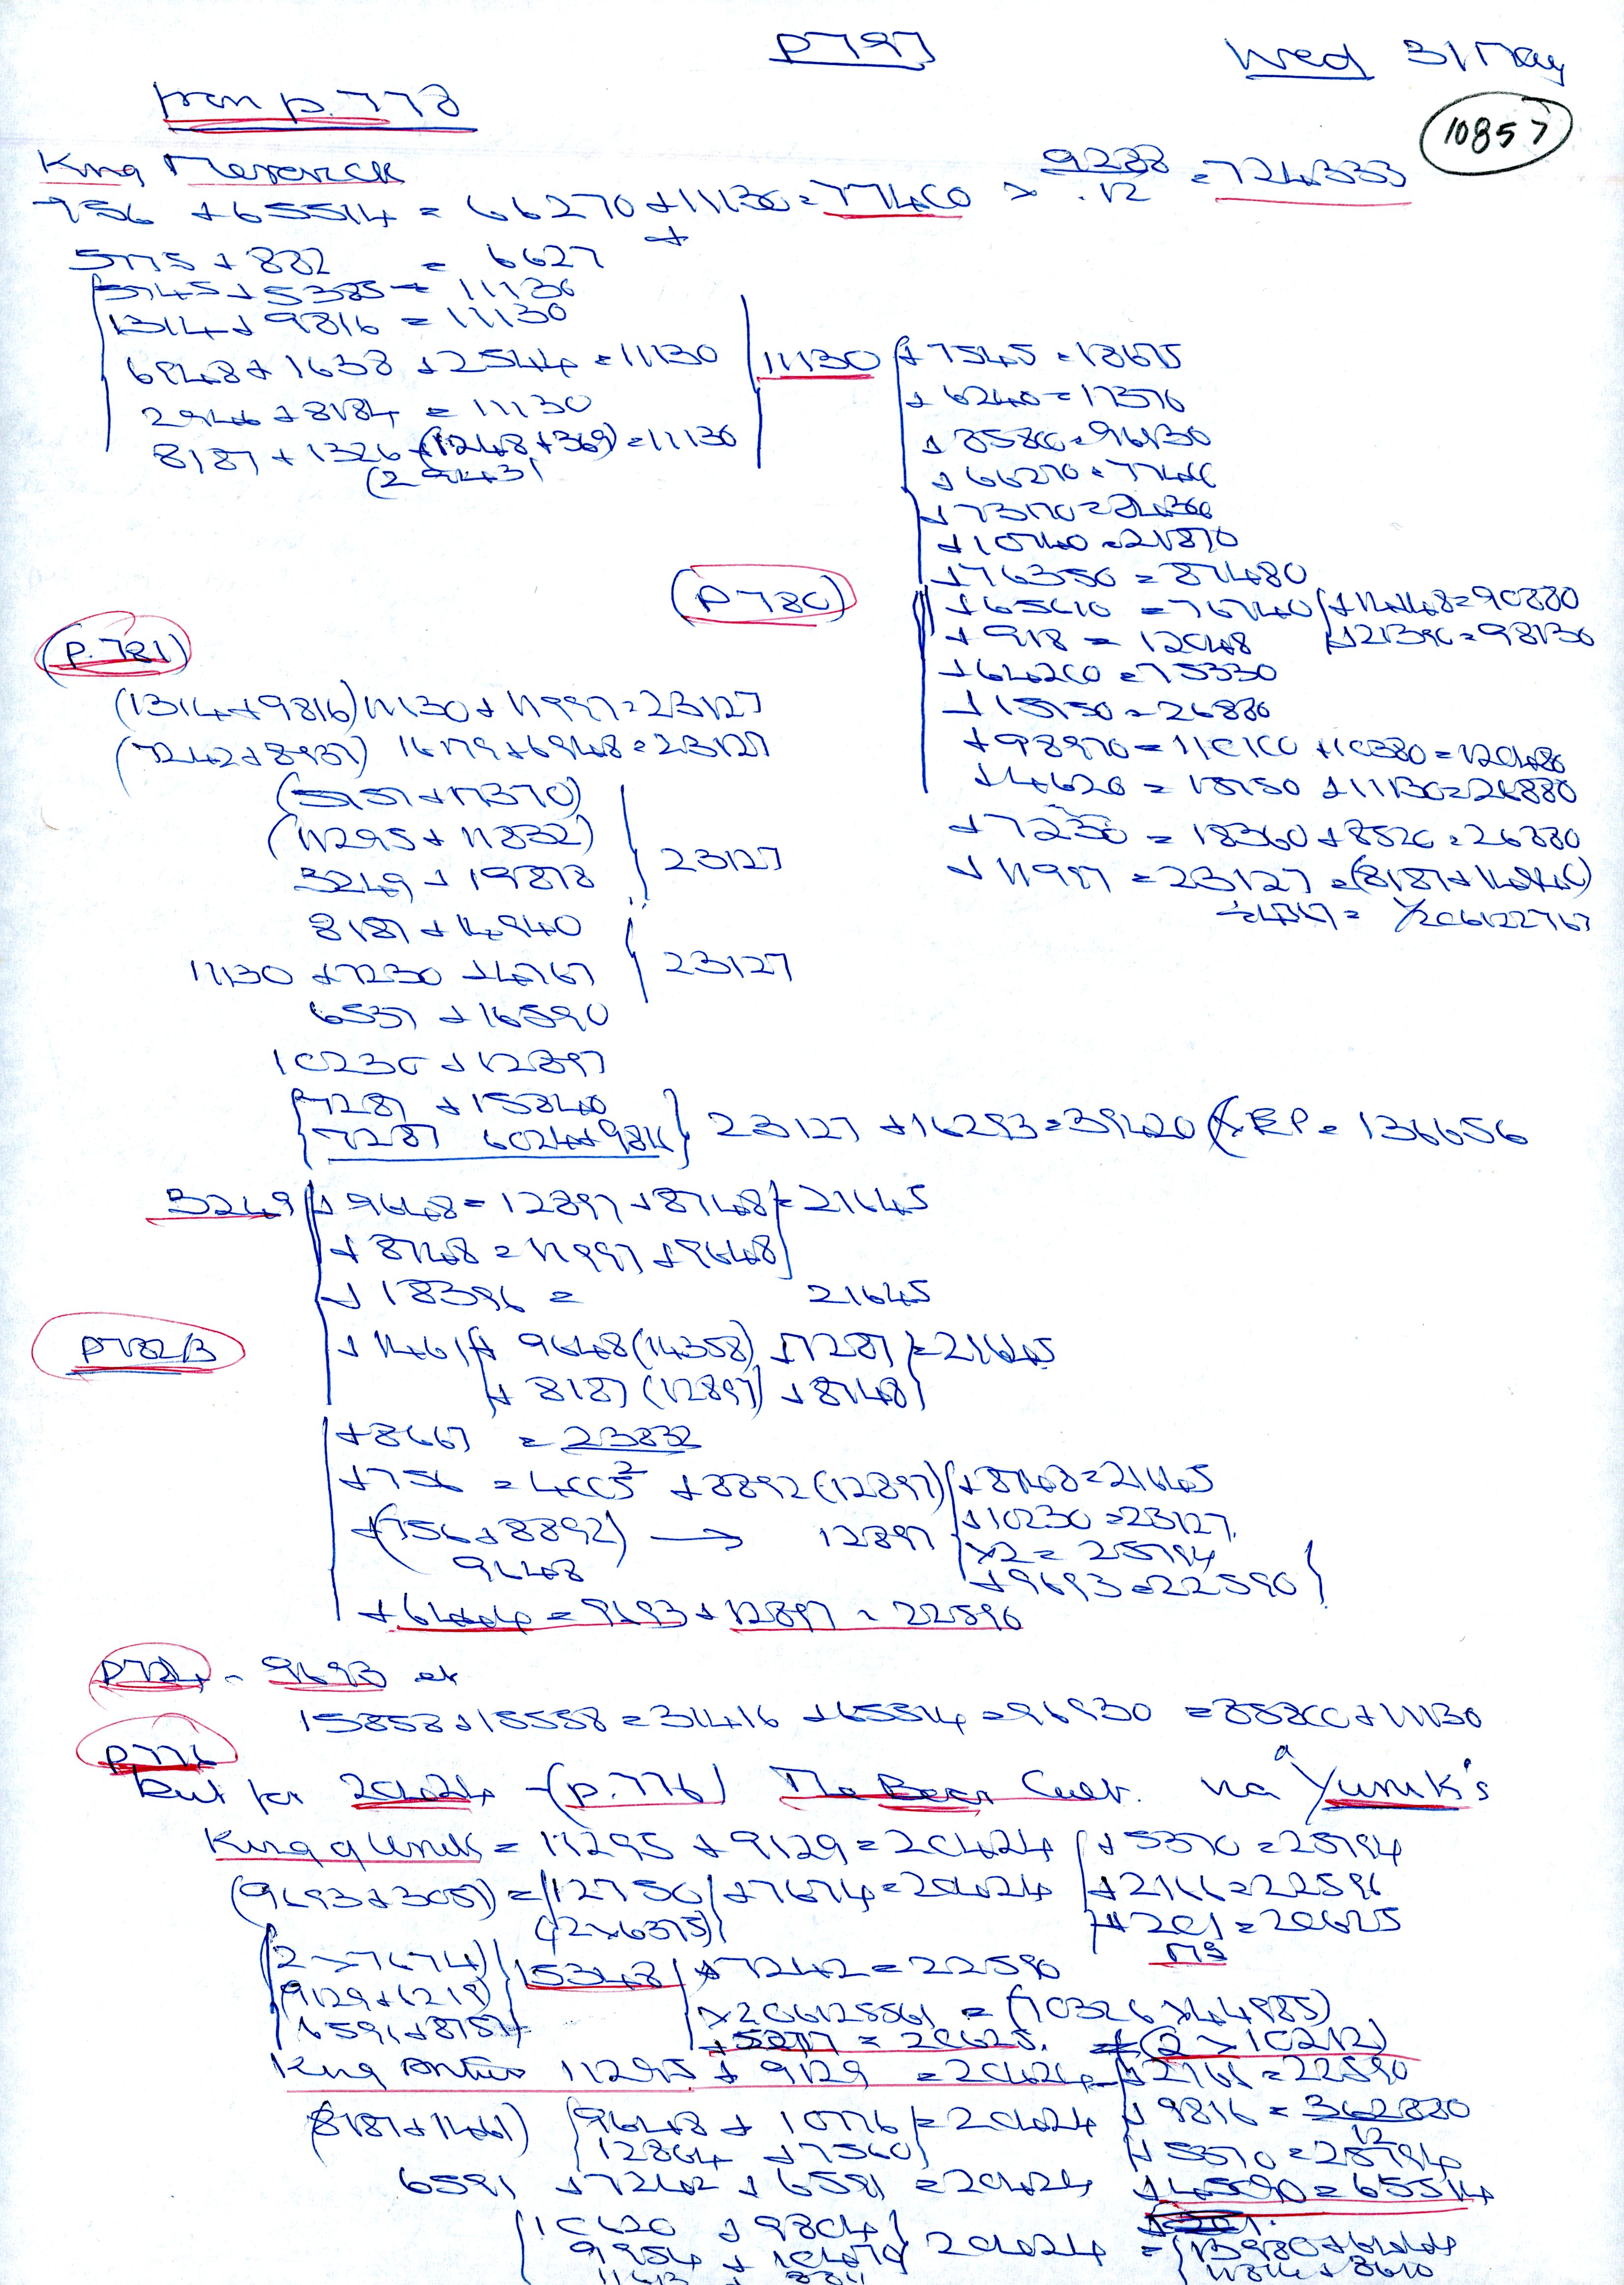 P797
Wed 31 May
from p.778
10857
King Maverick
756 + 65514 = 66270 + 11130 = 77400 × 9288/.12 = 724.333
5775 + 882 = 6627
5745 + 5385 = 11130
1314 + 9816 = 11130
6948 + 1638 + 2544 = 11130
2946 + 8184 = 11130
8187 + 1326 + (1248 + 369) = 11130
(2943)
11130
+ 7545 = 18675
+ 6240 = 17370
+ 85800 = 96930
+ 66270 = 77400
+ 73170 = 84300
+ 10740 = 21870
+ 76350 = 87480
+ 65610 = 76740 + 14148 = 90880
+ 21390 = 98130
+ 918 = 12048
+ 64200 = 75330
+ 15750 = 26880
+ 98970 = 110100 + 10380 = 120480
+ 4620 = 15750 + 11130 = 26880
+ 7230 = 18360 + 8520 = 26880
+ 11997 = 23127 = (8187 + 14940)
(P780)
(P.781)
(1314 + 9816) 11130 + 11997 = 23127
(7242 + 8937) 16179 + 6948 = 23127
(5757 + 17370)
(11295 + 11832)
3249 + 19878
23127
8187 + 14940
11130 + 7230 + 4767
23127
6537 + 16590
10230 + 12897
7287 + 15840
7287 6024 + 9816
23127 + 16293 = 39420 (× EP = 136656
3249 + 9648 = 12897 + 8748 = 21645
+ 8748 = 11997 + 9648
+ 18396 = 21645
P782/3
+ 1461 + 9648 (14358) + 7287 = 21645
+ 8187 (12897) + 8748
+ 8667 = 23832
+ 756 = 4005² + 8892 (12897) + 8748 = 21645
+ (756 + 8892) → 12897 + 10230 = 23127
9648
×2 = 25794
+ 9693 = 22590
+ 6444 = 9693 + 12897 = 22590
P784 - 9693 et
15858 + 15558 = 31416 + 65514 = 96930 = 85800 + 11130
P776
But for 20424 - (p.776) The Bear Cult. via a Yurik's
King of Uruk = 11295 + 9129 = 20424 + 5370 = 25794
(9693 + 3057) = 12750 + 7674 = 20424 + 2166 = 22590
(2 × 6375)
+ 201 = 20625
(2 × 7674)
9129 + 6219
6591 + 8757
15348 + 7242 = 22590
× 206125561 = (10326 × 14985)
+ 5277 = 20625. (2 × 10212)
King Antes 11295 + 9129 = 20424 + 2166 = 22590
(8187 + 1461) 9648 + 10776 = 20424 + 9816 = 362880/12
12864 + 7560
+ 5370 = 25794
6591 + 7242 + 6591 = 20424 + 45090 = 65514
10620 + 9804
9954 + 10470
20424 = 13980 + 6444
11814 + 8610